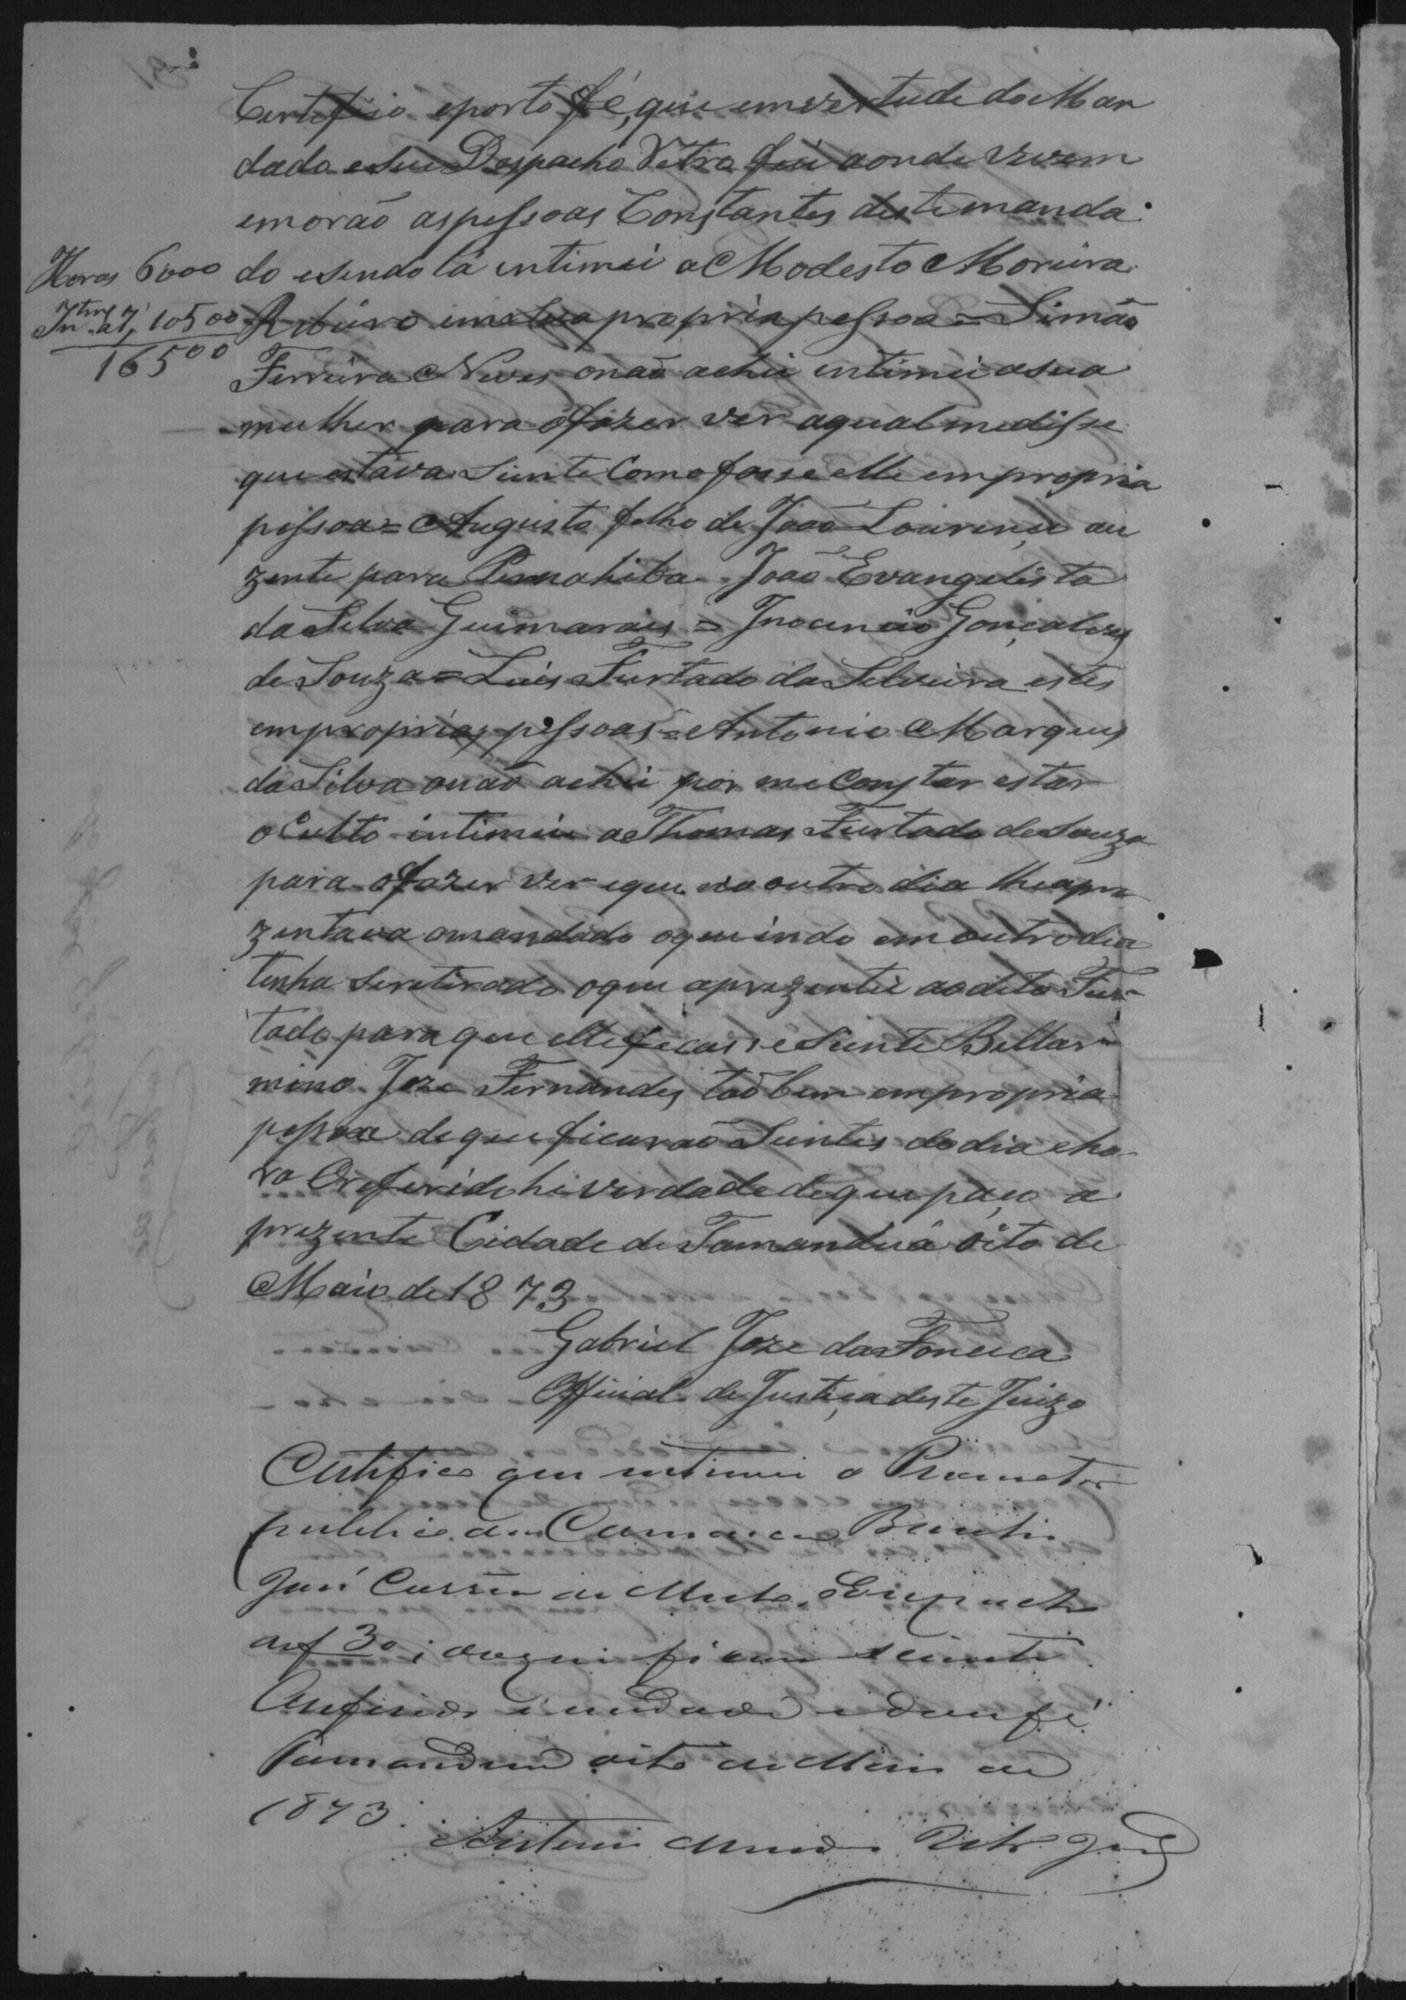 Certefico eporto fé, que emvertude do Man
dado esue Despacho Retro fui aonde vivem
emorão aspessoas Constantes deste manda
do esendo lá intimei a Modesto Moreira
Horas 6000
Ribeiro emsua propria pessoa = Simão
10500
16500
Ferreira Neves onaõ achei intimei asua
mulher para ofazer ver aqual medisse
que estava Siente Como fosse elle empropria
pessoa = Augusto filho de Joaõ Lourenço au
zente para Parnahiba Joaõ Evangelista
da Silva Guimarais = Inocencio Gonçalves
de Souza = Luis Furtado da Silveira estes
emproprias pessoas = Antonio Marques
da Silva onaõ achei por me Constar estar
oculto intimei a Thomas Furtado de Souza
para ofazer ver eque no outro dia lheapre
zentava omandado oqueindo em outro dia
tinha Seretirado oque aprezentei aodito Fur
tado para que elle ficasse Siente Bellar
mino Joze Fernandes taõbem empropria
pessoa deque ficaraõ Sientes do dia eho
ra Oreferido he verdade deque paço a
prezente Cidade de Tamanduá oito de
Maio de 1873
Gabriel Joze da Fonceca
Official de Justiça deste Juizo
Certifico que intimei o Promotor
publico da Comarca
José Corrêa de
de f 30; do que ficou sciente
Oreferido é verdade e dou fé
Tamanduá oito de Maio de
1873.
Antonio